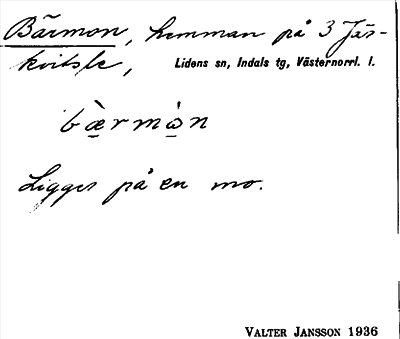 Bärmon, hemman på 3 Järkvitsle, Lidens sn, Indals tg, Västernorrl. l.
bæ̀rmὼn
Ligger på en mo.
VALTER JANSSON 1936